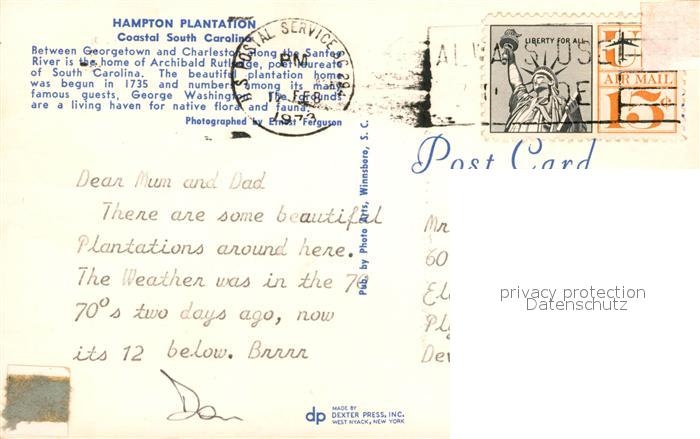 HAMPTON PLANTATION
Coastal South Carolina
Between Georgetown and Charleston along the Santee
River is the home of Archibald Rutledge, poet laureate
of South Carolina. The beautiful plantation home
was begun in 1735 and numbers among its many
famous guests, George Washington. The grounds
are a living haven for native flora and fauna.
Photographed by Ernest Ferguson
U.S. POSTAL SERVICE SC 294
PM
FEB
1973
ALWAYS USE
ZIP CODE
LIBERTY FOR ALL
U
AIR MAIL
15¢
Post Card
Dear Mum and Dad
There are some beautiful
Plantations around here.
The Weather was in the 70
70°s two days ago, now
its 12 below. Brrrr
Dan
Pub. by Photo Arts, Winnsboro, S. C.
Mr
60
El
Ply
Dev
privacy protection
Datenschutz
dp
MADE BY
DEXTER PRESS, INC.
WEST NYACK, NEW YORK